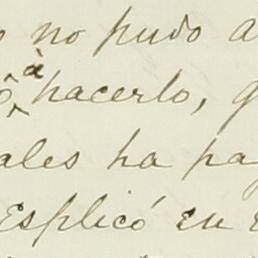 no pudo a
à hacerlo,
ales ha pa
Esplicó en